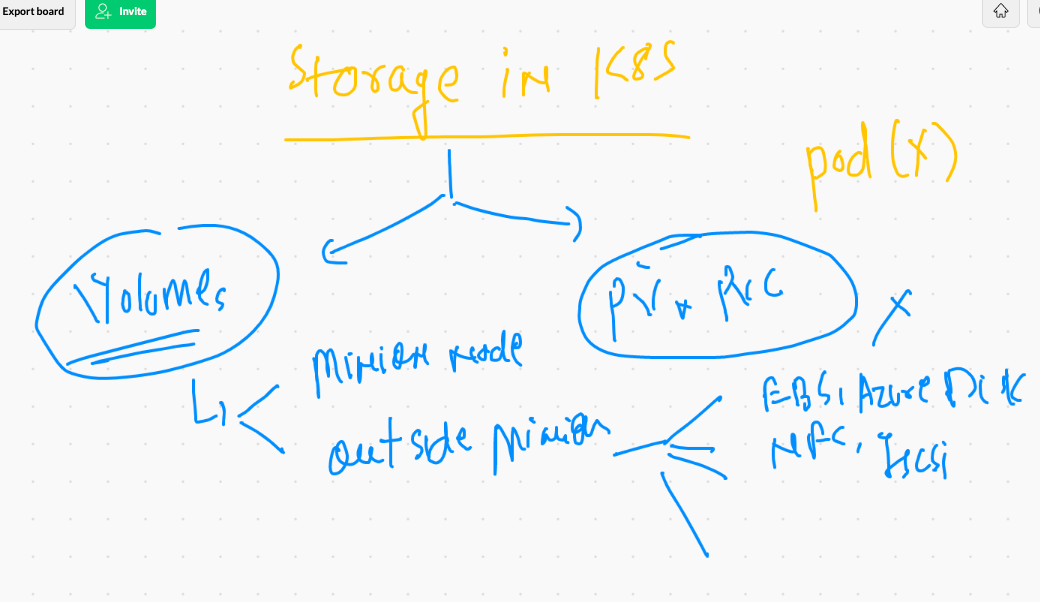 Export board
Invite
Storage in K8S
pod (x)
Volumes
PV, PVC
x
Minion node
outside Minion
EBS, Azure Disk
NFS, Iscsi